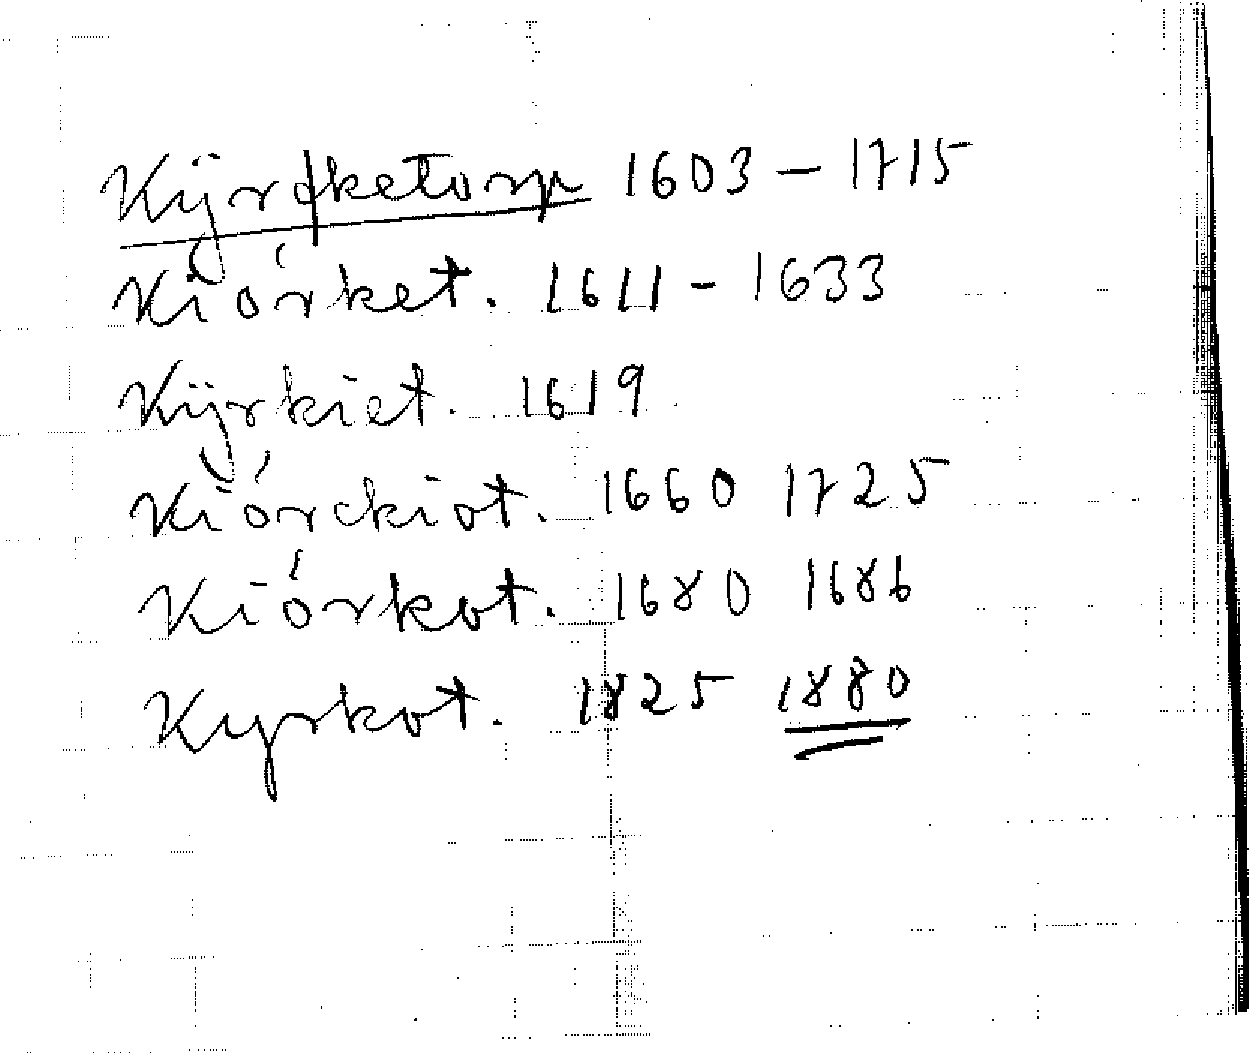 Kÿrcketorp 1603 – 1715
Kiörket. 1611 – 1633
Kÿrkiet. 1619
Kiörckiot. 1660 1725
Kiörkot. 1680 1686
Kyrkot. 1825 1880